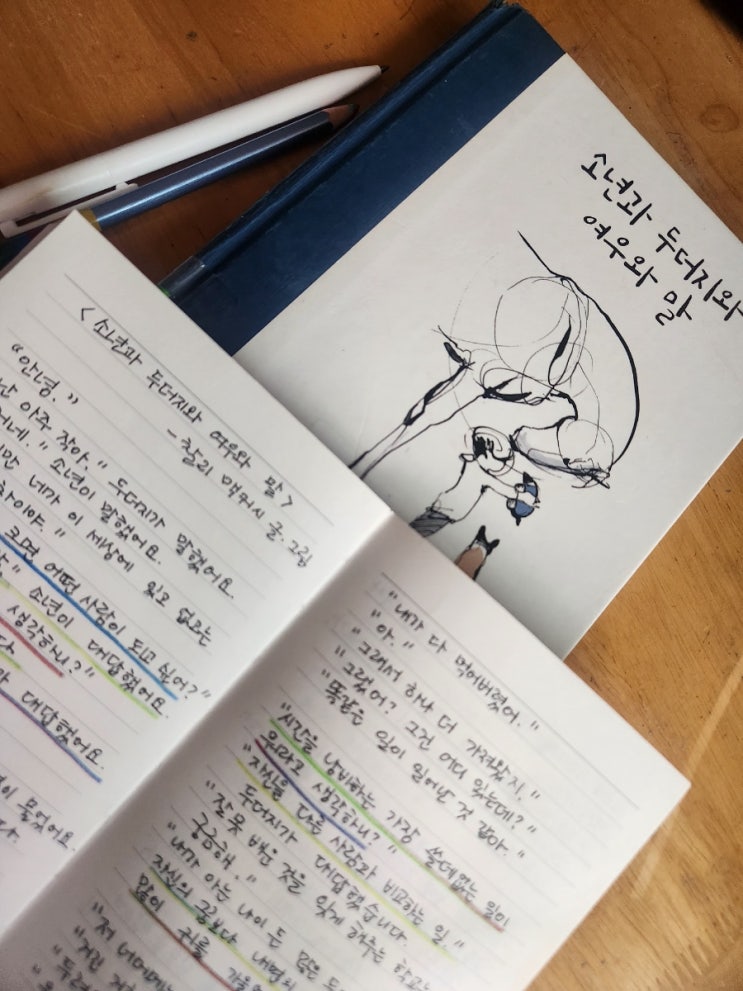 소년과 두더지와
여우와 말
<소년과 두더지와 여우와 말>
- 찰리 맥커시 글.그림
"안녕."
난 아주 작아." 두더지가 말했어요.
러네." 소년이 말했어요.
지만 네가 이 세상에 있고 없고는
차이야."
크면 어떤 사람이 되고 싶어?"
소년이 대답했어요.
생각하니?"
대답했어요.
물었어요.
"내가 다 먹어버렸어."
"아."
"그래서 하나 더 가져왔지."
"그랬어? 그건 어디 있는데?"
"똑같은 일이 일어난 것 같아."
"시간을 낭비하는 가장 쓸데없는 일이
뭐라고 생각하니?"
"자신을 다른 사람과 비교하는 일."
두더지가 대답했습니다.
"잘못 배운 것을 잊게 해주는 학교
궁금해."
"내가 아는 나이 든
자신의 꿈보다 내면의
많이 귀를